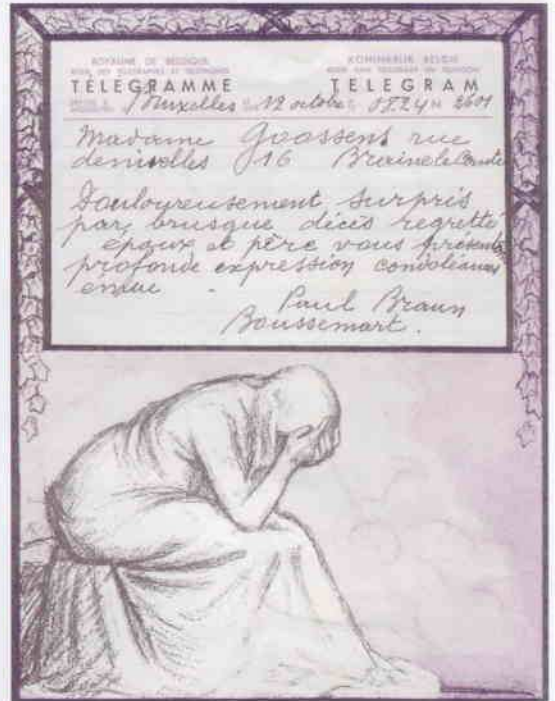 ROYAUME DE BELGIQUE
KONINKRIJK BELGIË
TÉLÉGRAMME
TELEGRAM
Bruxelles 12 octobre 0824 N 2601
Madame Goossens rue
denivelles 16 Brainelecomte
Douloureusement surpris
par brusque décès regretté
époux et père vous présente
profonde expression condoléances
émue
Paul Braun
Boussemart.